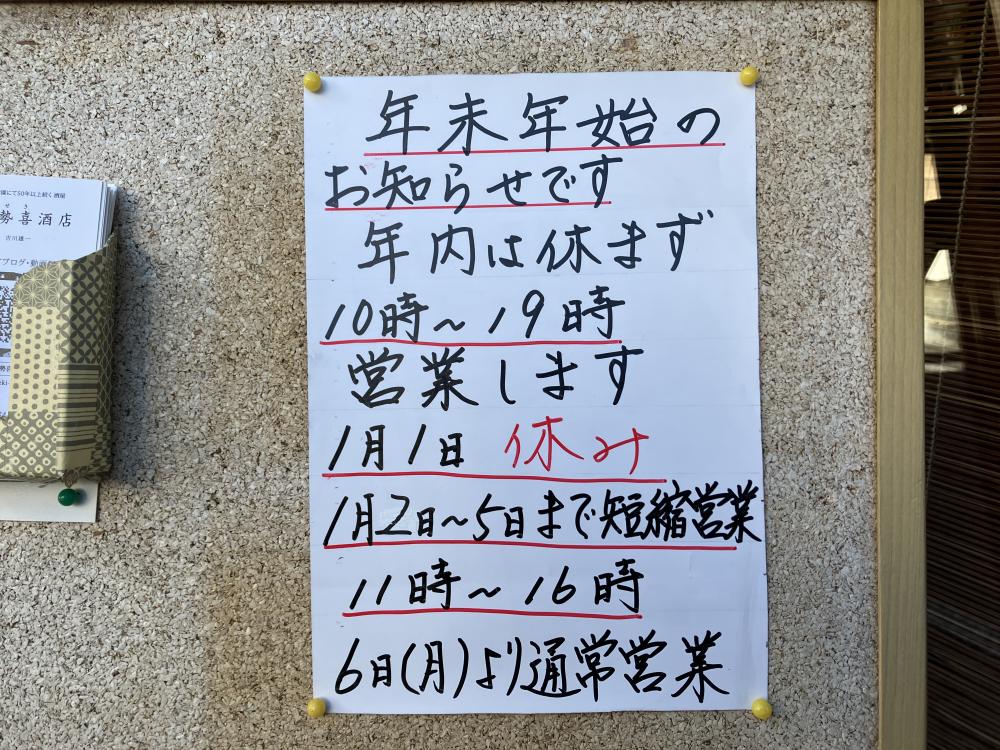 年末年始の
お知らせです
年内は休まず
10時～19時
営業します
1月1日 休み
1月2日～5日まで短縮営業
11時～16時
6日(月)より通常営業
にて50年以上続く酒屋
せき
勢喜酒店
吉川雄一
ブログ・動画